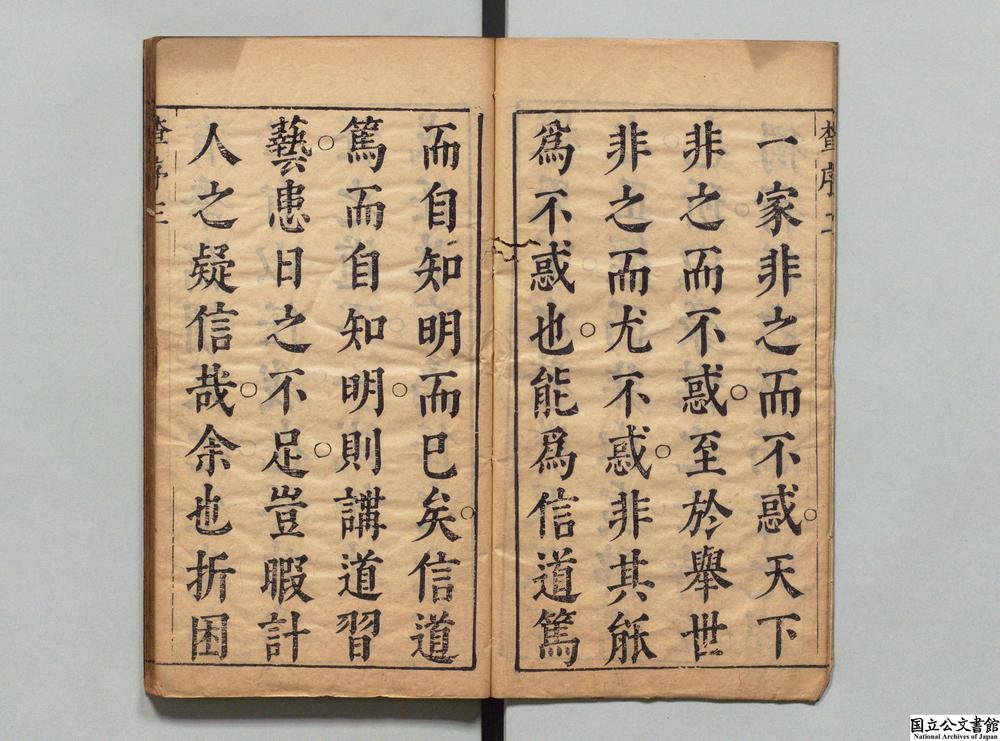 一家非之而不惑天下
非之而不惑至於舉世
非之而尤不惑非其能
爲不惑也能爲信道篤
而自知明而已矣信道
篤而自知明則講道習
藝患日之不足豈暇計
人之疑信哉余也折困
序三
国立公文書館
National Archives of Japan